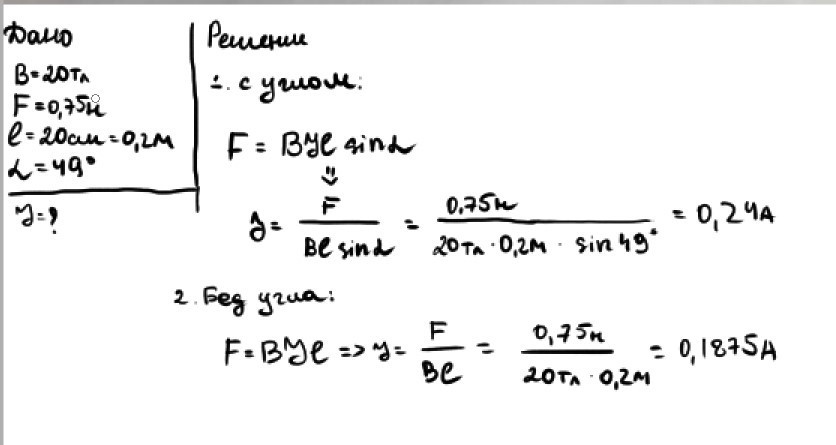 Дано
B=20Тл
F=0,75н
l=20см=0,2м
α=49°
I=?
Решение
1. с углом:
F = BIl sinα
⇓
I = F / Bl sinα = 0,75н / 20Тл · 0,2м · sin 49° = 0,24А
2. Без угла:
F=BIl => I = F / Bl = 0,75н / 20Тл · 0,2м = 0,1875А